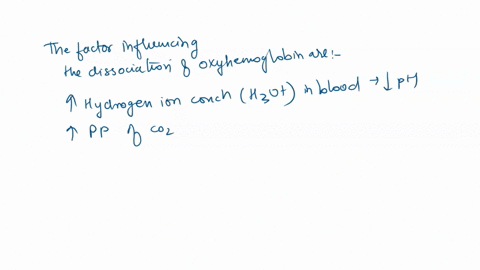 The factor influencing
the dissociation of oxyhemoglobin are:-
↑ Hydrogen ion concn (H3O+) in blood → ↓ pH
↑ PP of CO2